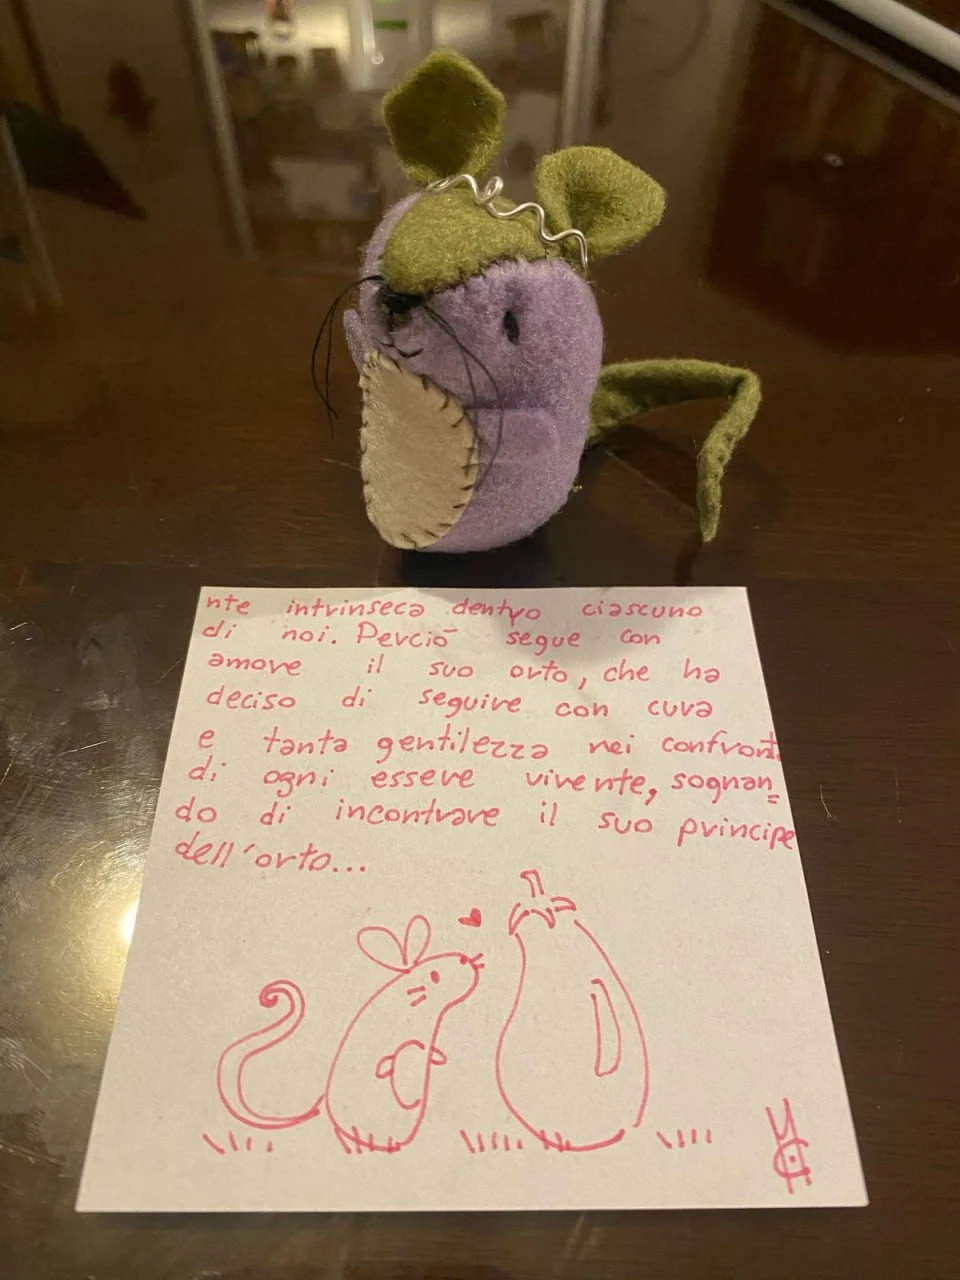 nte intrinseca dentro ciascuno
di noi. Perciò segue con
amore il suo orto, che ha
deciso di seguire con cura
e tanta gentilezza nei confronti
di ogni essere vivente, sognan=
do di incontrare il suo principe
dell'orto...